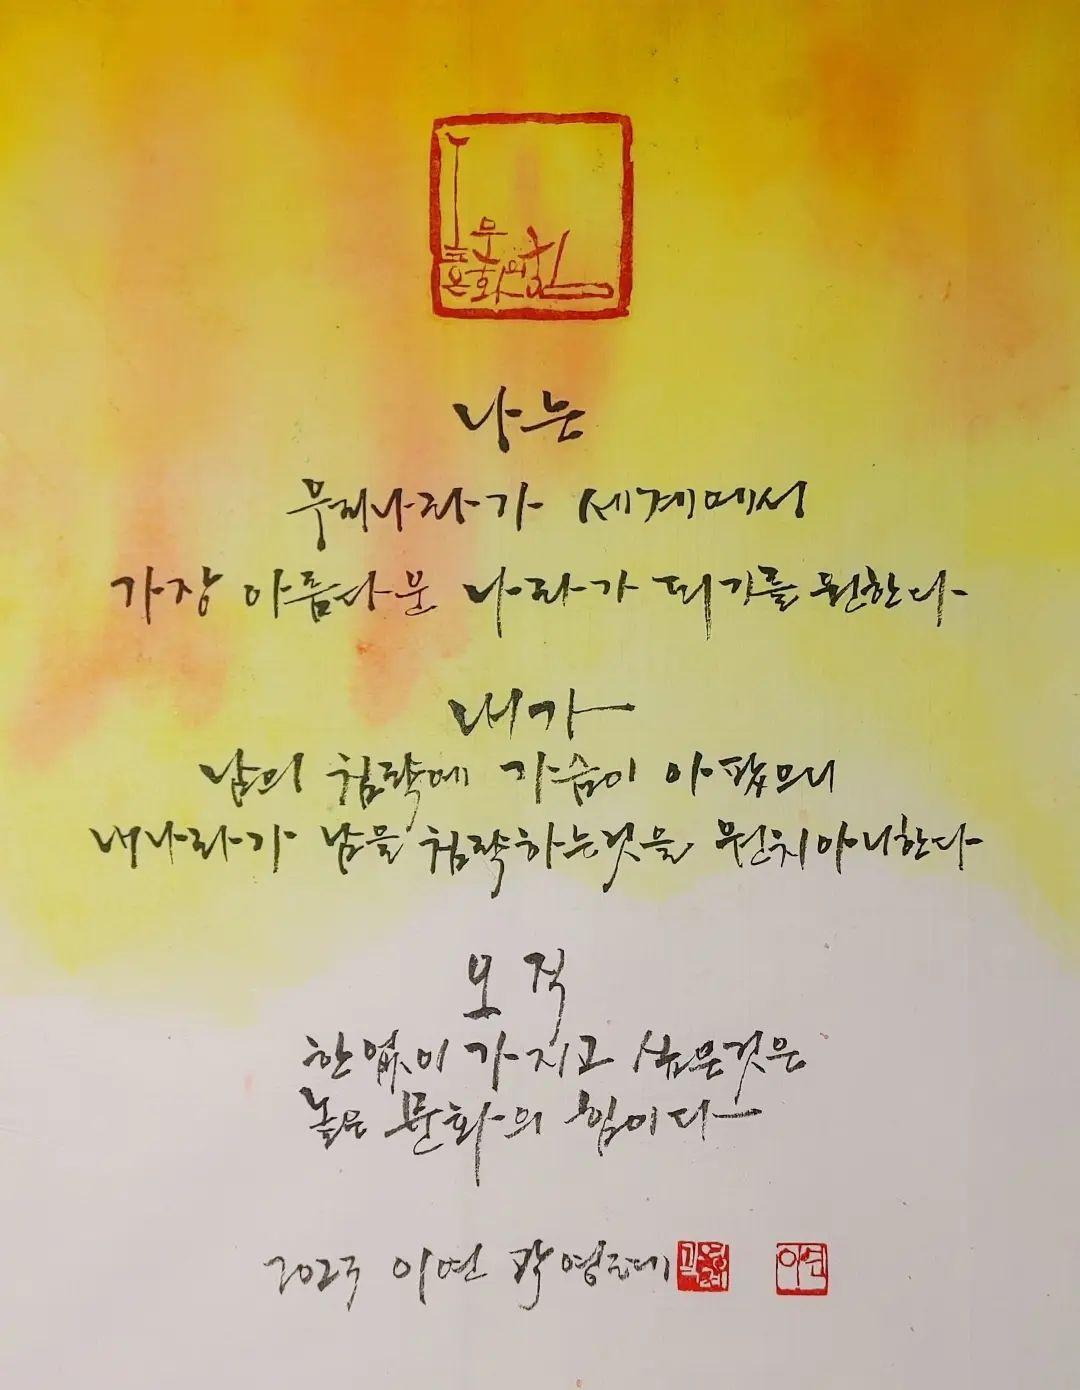 높은 문화의 힘
나는
우리나라가 세계에서
가장 아름다운 나라가 되기를 원한다
내가
남의 침략에 가슴이 아팠으니
내나라가 남을 침략하는것을 원치아니한다
오직
한없이 가지고 싶은것은
높은 문화의 힘이다
2023 이연 곽영례 곽영례